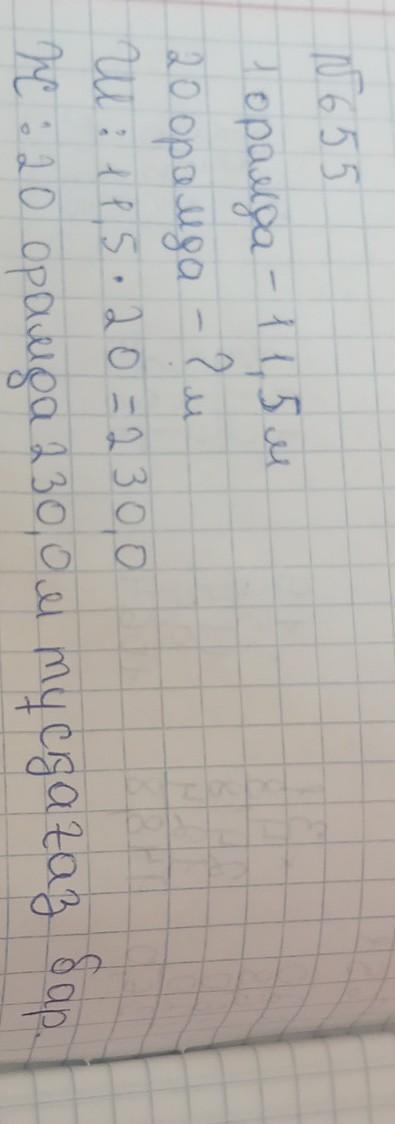 №655
1 орамда - 11,5 м
20 орамда - ? м
Ш: 11,5 · 20 = 230,0
Ж: 20 орамда 230,0 м тусқағаз бар.